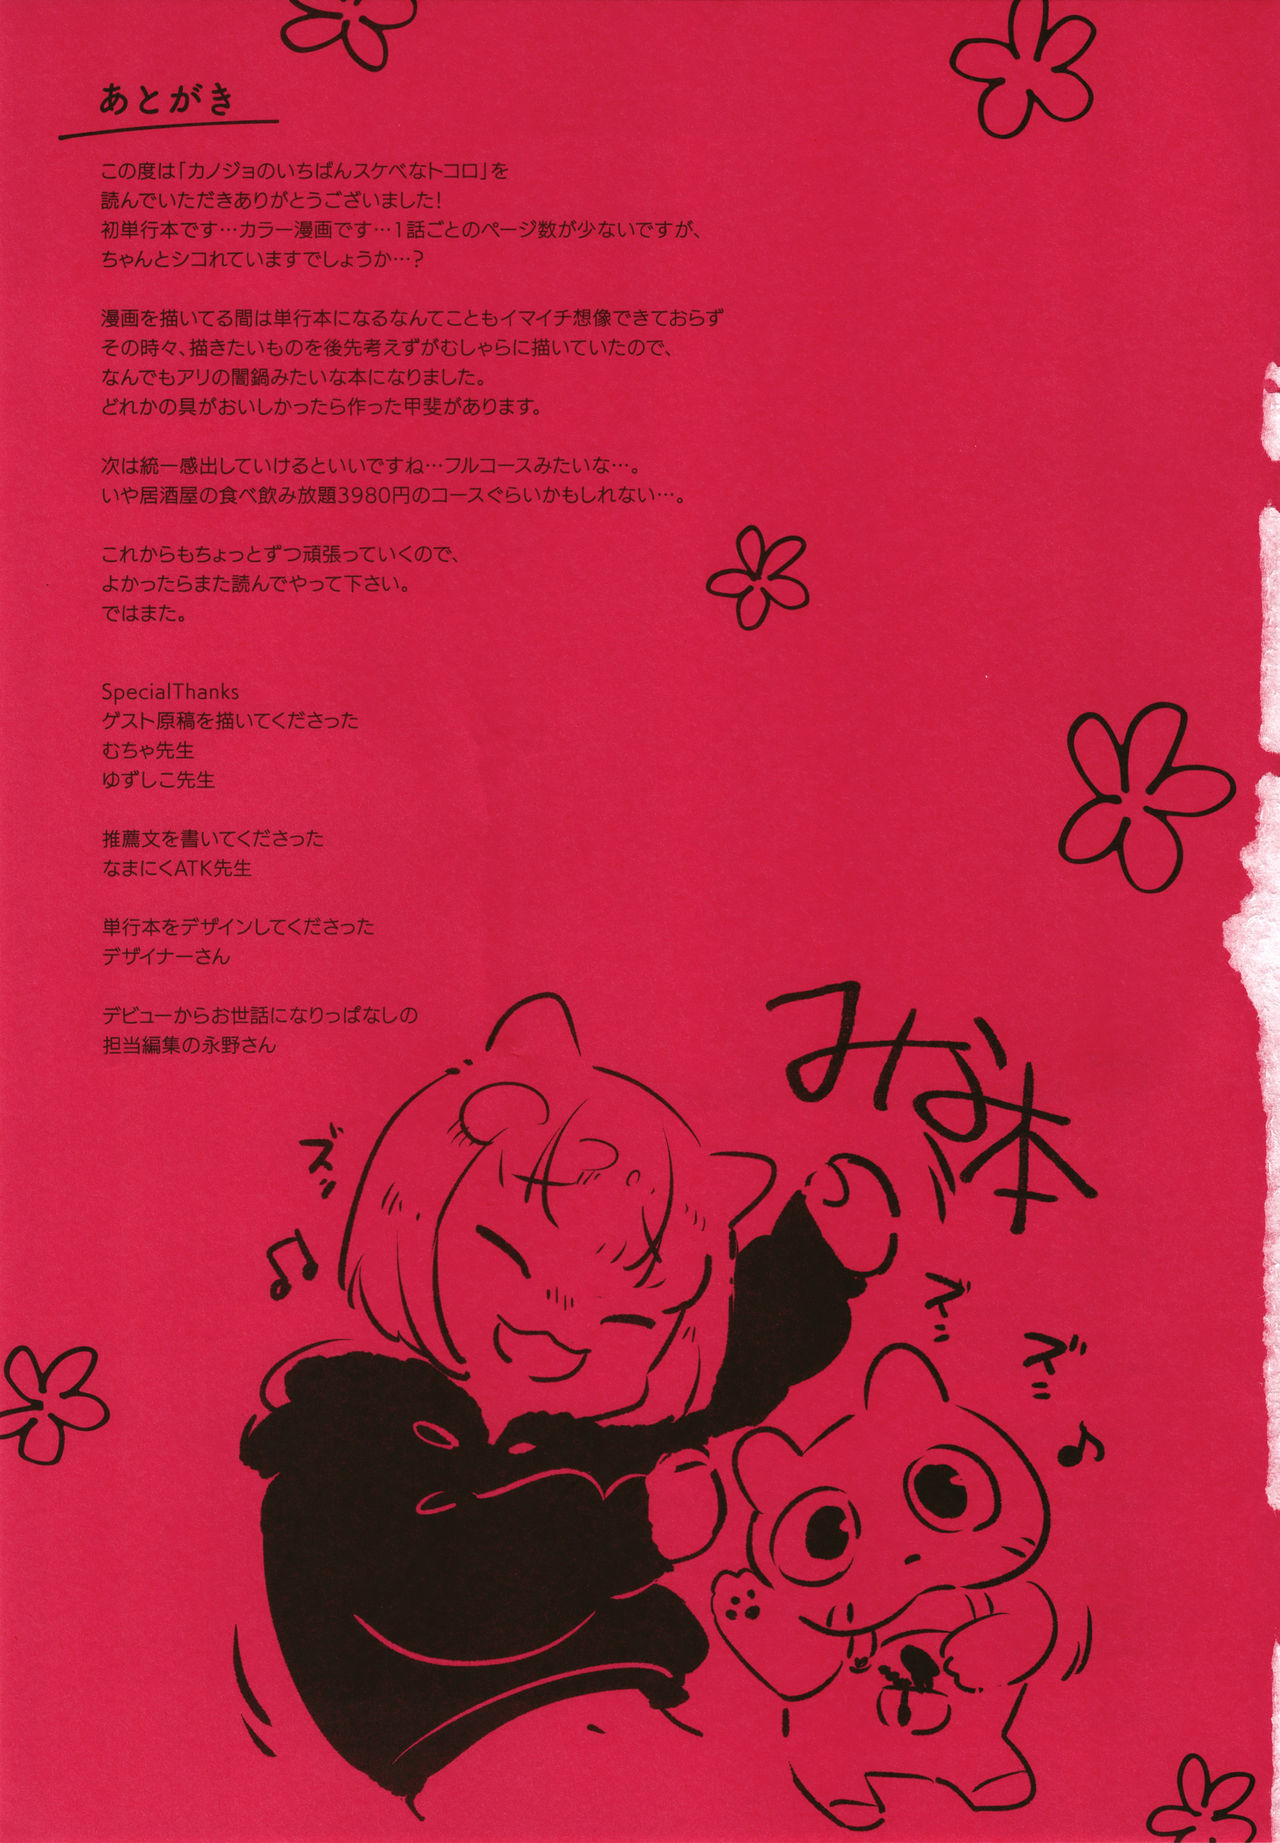 あとがき
この度は「カノジョのいちばんスケベなトコロ」を
読んでいただきありがとうございました!
初単行本です…カラー漫画です…1話ごとのページ数が少ないですが、
ちゃんとシコれていますでしょうか…?
漫画を描いてる間は単行本になるなんてこともイマイチ想像できておらず
その時々、描きたいものを後先考えずがむしゃらに描いていたので、
なんでもアリの闇鍋みたいな本になりました。
どれかの具がおいしかったら作った甲斐があります。
次は統一感出していけるといいですね…フルコースみたいな…。
いや居酒屋の食べ飲み放題3980円のコースぐらいかもしれない…。
これからもちょっとずつ頑張っていくので、
よかったらまた読んでやって下さい。
ではまた。
SpecialThanks
ゲスト原稿を描いてくださった
むちゃ先生
ゆずしこ先生
推薦文を書いてくださった
なまにくATK先生
単行本をデザインしてくださった
デザイナーさん
デビューからお世話になりっぱなしの
担当編集の永野さん
みな本
ズン
ズン
ズン